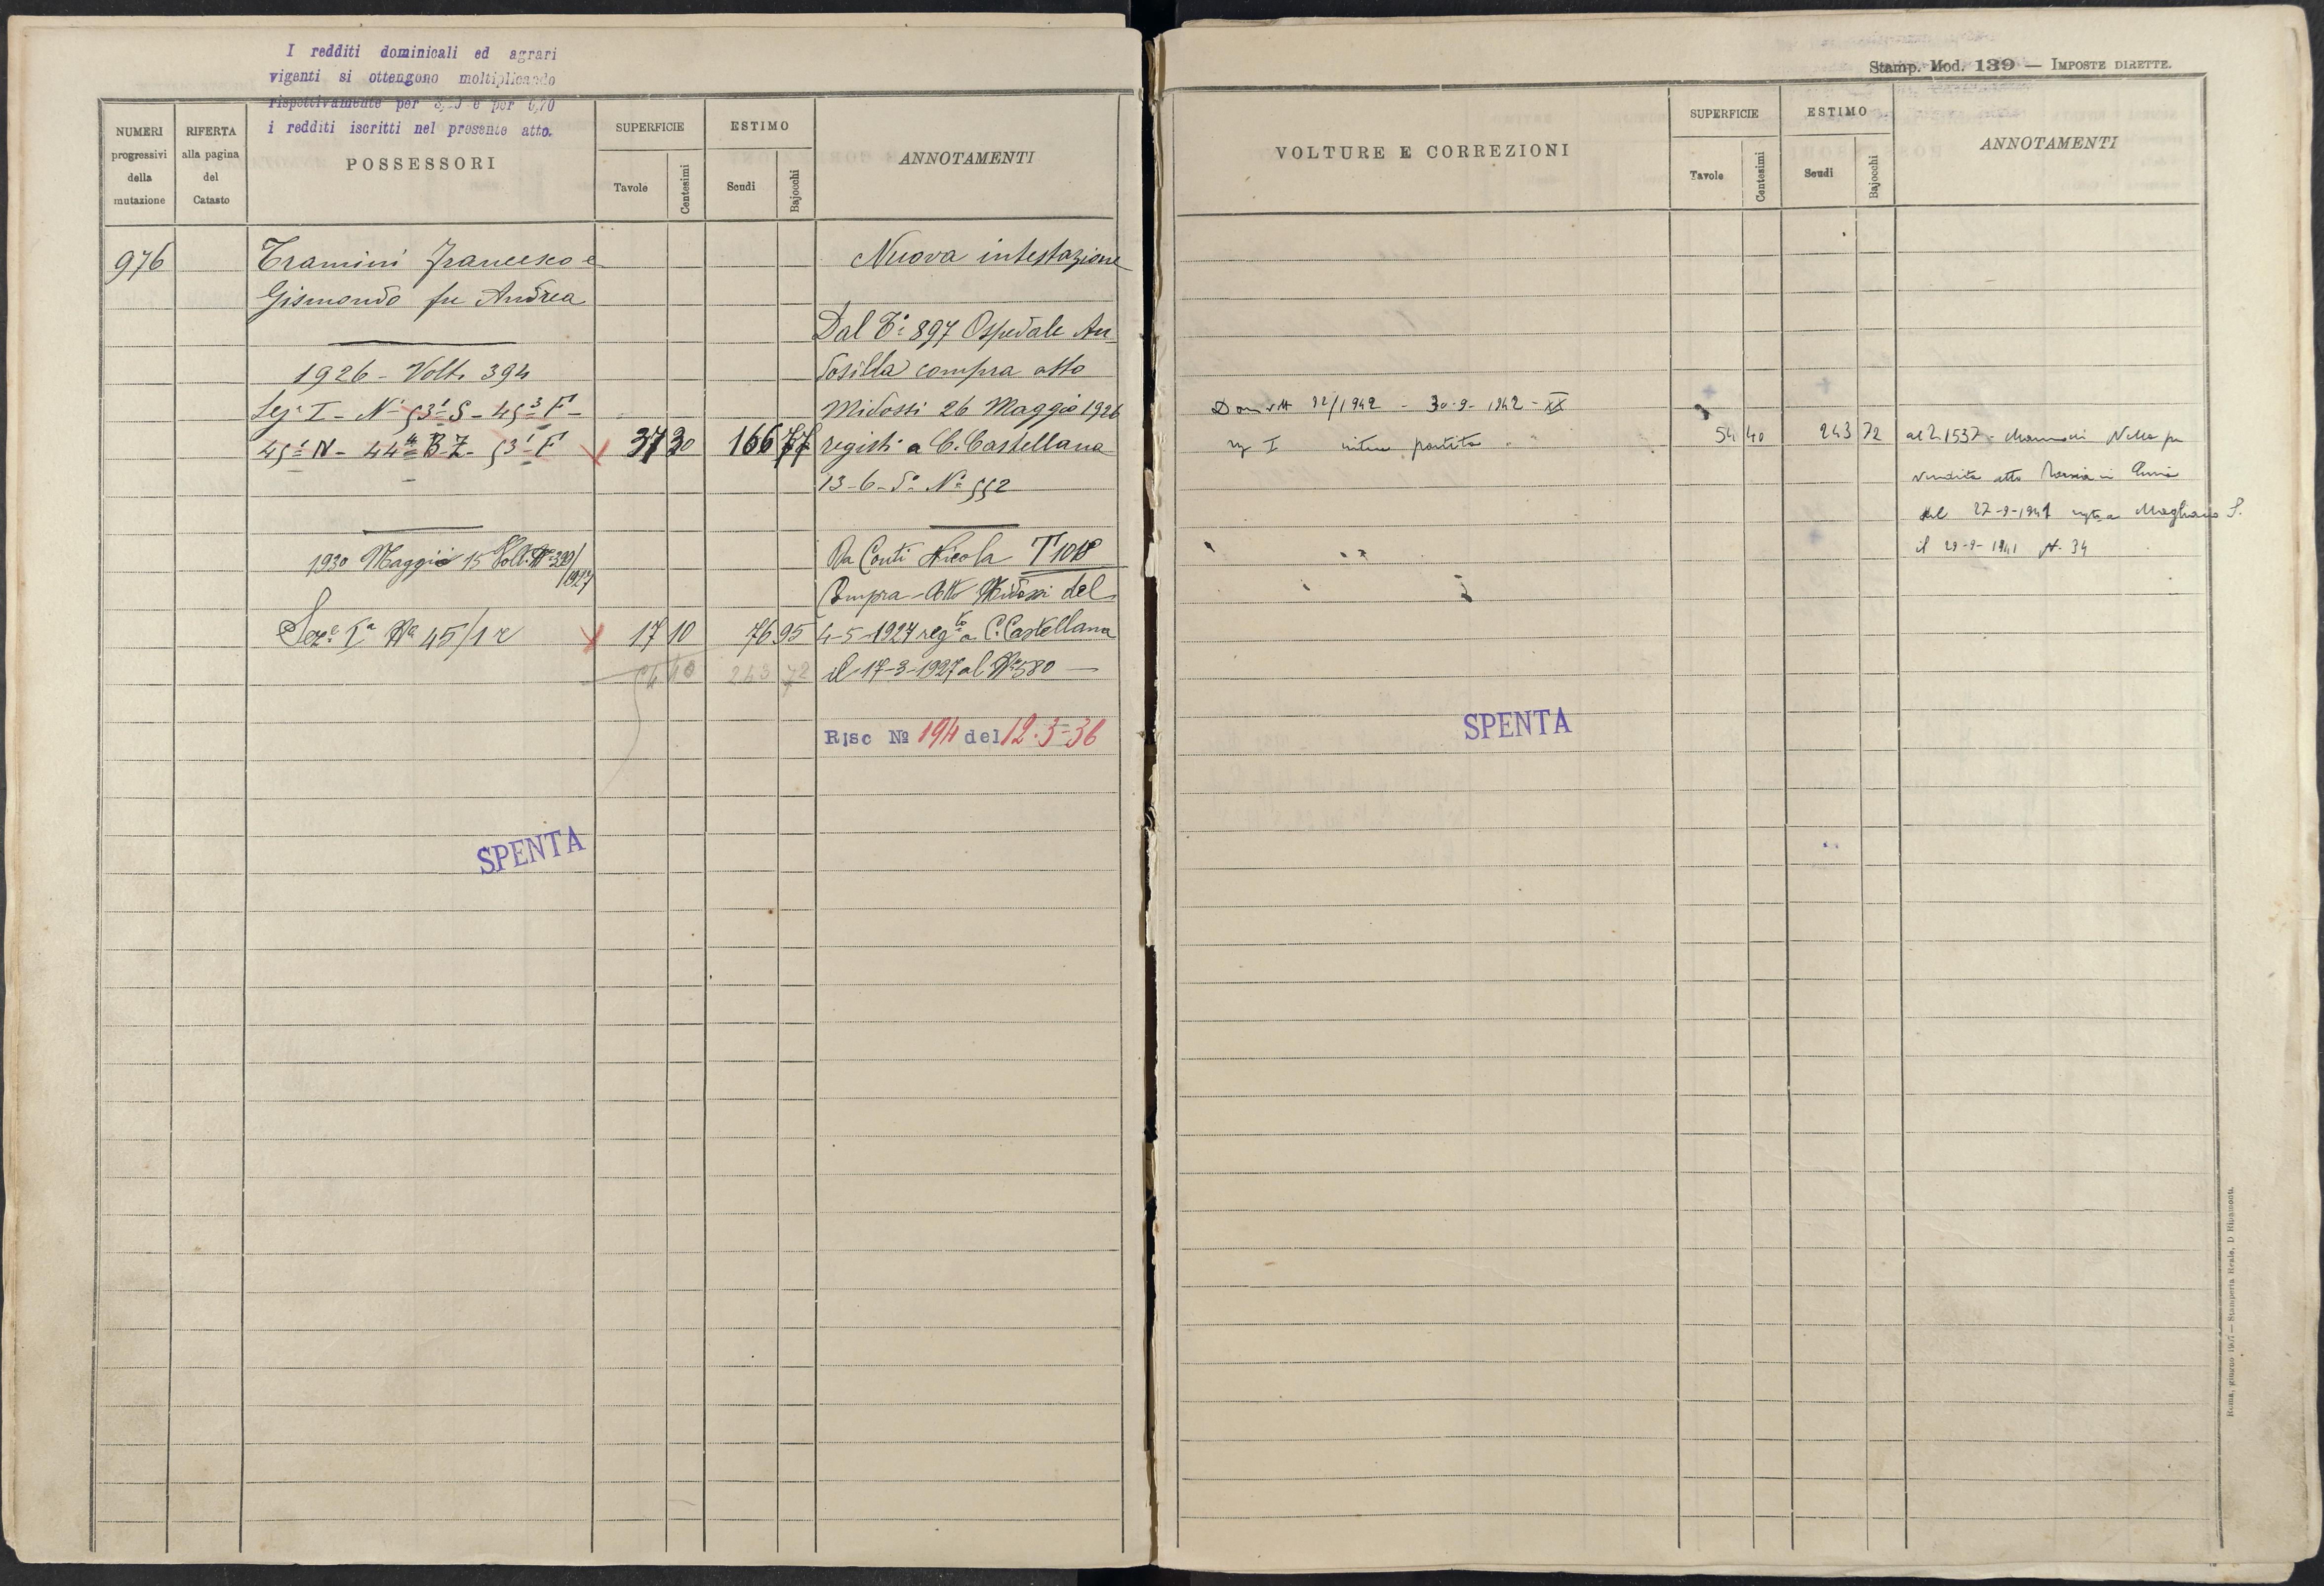 I redditi dominicali ed agrari
vigenti si ottengono moltiplicando
rispettivamente per e per 6,70
i redditi iscritti nel presente atto.
NUMERI progressivi della mutazione
RIFERTA alla pagina del Catasto
POSSESSORI
SUPERFICIE
Tavole
Centesimi
ESTIMO
Scudi
Bajocchi
ANNOTAMENTI
976 Tramini Francesco e Nuova intestazione
Gismondo fu Andrea
Dal T° 897 Ospedale An-
1926 - Volt. 394 dosilla compra atto
Sez. I - N° 53¹ S - 45³ F - Midossi 26 Maggio 1926
45¹ N - 44⁴ B-Z - 53¹ F 37 30 166 77 regist. a C. Castellana
13-6-d° N° 552
1930 Maggio 15 Volt. N° 399/1927 Da Conti Nicola T 1018
Compra - Atto Midossi del
Sez.e Iª Nº 45/1 r 17 10 76 95 4-5-1927 reg.to a C. Castellana
54 40 243 72 il 17-3-1927 al Nº 580
Risc Nº 194 del 12-3-36
SPENTA
Stamp. Mod. 139 — IMPOSTE DIRETTE.
VOLTURE E CORREZIONI
SUPERFICIE
Tavole
Centesimi
ESTIMO
Scudi
Bajocchi
ANNOTAMENTI
92/1942 - 30-9-1942 - XX
I intera partita 54 40 243 72 al 1537 Nella per
vendita atto
del 27-9-1941 a Magliano S.
il 29-9-1941 N. 34
SPENTA
Roma, giugno 1907 — Stamperia Reale, D. Ripamonti.